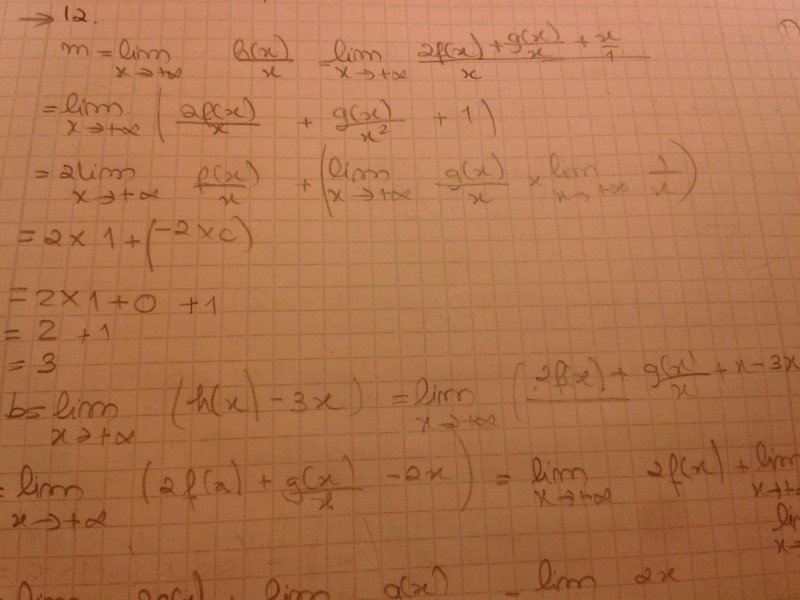 → 12.
m = lim x→+∞ h(x)/x = lim x→+∞ (2f(x) + g(x)/x + x/1)/x
= lim x→+∞ ( 2f(x)/x + g(x)/x² + 1 )
= 2 lim x→+∞ f(x)/x + ( lim x→+∞ g(x)/x × lim x→+∞ 1/x )
= 2 × 1 + (-2 × 0)
= 2 × 1 + 0 + 1
= 2 + 1
= 3
b = lim x→+∞ (h(x) - 3x) = lim x→+∞ ( 2f(x) + g(x)/x + x - 3x
= lim x→+∞ ( 2f(x) + g(x)/x - 2x ) = lim x→+∞ 2f(x) + lim x→+∞
lim x→
lim g(x) - lim 2x